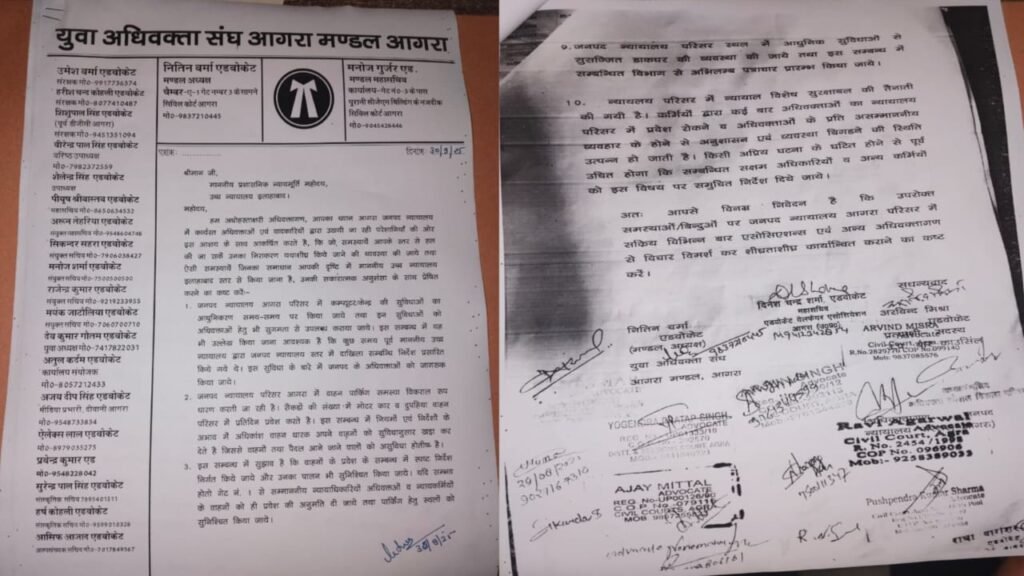 युवा अधिवक्ता संघ आगरा मण्डल आगरा
उमेश वर्मा एडवोकेट
संरक्षक मो०-9917736374
हरीश चन्द कोहली एडवोकेट
संरक्षक मो०-8077410487
शिशुपाल सिंह एडवोकेट
(पूर्व डीजीसी आगरा)
संरक्षक मो०-9451351094
वीरेन्द्र पाल सिंह एडवोकेट
वरिष्ठ उपाध्यक्ष
मो०-7982372559
शैलेन्द्र सिंह एडवोकेट
उपाध्यक्ष
पीयूष श्रीवास्तव एडवोकेट
महासचिव मो०-8650634532
अरून तेहरिया एडवोकेट
संयुक्त सचिव मो०-9548604748
सिकन्दर सहरा एडवोकेट
संयुक्त सचिव मो०-7906038427
मनोज शर्मा एडवोकेट
संयुक्त सचिव मो०-7500500500
राजेन्द्र कुमार एडवोकेट
संयुक्त सचिव मो०-9219233955
मयंक जाटोलिया एडवोकेट
संयुक्त सचिव मो०-7060700710
देव कुमार गौतम एडवोकेट
युवा अध्यक्ष मो०-7417822031
अतुल कर्दम एडवोकेट
कार्यालय संयोजक
मो०-8057212433
अजय दीप सिंह एडवोकेट
मीडिया प्रभारी, दीवानी आगरा
मो०-9548733834
ऐलेक्स लाल एडवोकेट
मो०-8979035275
प्रवेन्द्र कुमार एड
मो०-9548228042
सुरेन्द्र पाल सिंह एडवोकेट
सांस्कृतिक सचिव 7895401311
हर्ष कोहली एडवोकेट
सांस्कृतिक सचिव मो०-9599018328
आसिफ आजाद एडवोकेट
अल्पसंख्यक सचिव मो०-7017849367
नितिन वर्मा एडवोकेट
मण्डल अध्यक्ष
चैम्बर-ए-1 गेट नम्बर 3 के सामने
सिविल कोर्ट आगरा
मो०-9837210445
मनोज गुर्जर एड.
मण्डल महासचिव
कार्यालय-गेट नं०-3 के पास
पुरानी सीजेएम बिल्डिंग के नजदीक
सिविल कोर्ट आगरा
मो०-9045426446
पत्रांक:
दिनांक 30/9/25
श्रीमान जी,
माननीय प्रशासनिक न्यायमूर्ति महोदय,
उच्च न्यायालय इलाहाबाद।
महोदय,
हम अधोहस्ताक्षरी अधिवक्तागण, आपका ध्यान आगरा जनपद न्यायालय
में कार्यरत अधिवक्ताओं एवं वादकारियों द्वारा उठायी जा रही परेशानियों की ओर
इस आशय के साथ आकर्षित करते है, कि जो, समस्यायें आपके स्तर से हल
की जा सकें उनका निराकरण यथाशीघ्र किये जाने की व्यवस्था की जाये तथा
ऐसी समस्यायें जिनका समाधान आपकी दृष्टि में माननीय उच्च न्यायालय
इलाहाबाद स्तर से किया जाना है, उनकी सकारात्मक अनुशंसा के साथ प्रेषित
करने का कष्ट करें-
1. जनपद न्यायालय आगरा परिसर में कम्प्यूटर/केन्द्र की सुविधाओं का
आधुनिकरण समय-समय पर किया जाये तथा इन सुविधाओं को
अधिवक्ताओं हेतु भी सुगमता से उपलब्ध कराया जाये। इस सम्बन्ध में यह
भी उल्लेख किया जाना आवश्यक है कि कुछ समय पूर्व माननीय उच्च
न्यायालय द्वारा जनपद न्यायालय स्तर में दाखिला सम्बन्धि निर्देश प्रसारित
किये गये थे। इस सुविधा के बारे में जनपद के अधिवक्ताओं को जागरूक
किया जाये।
2. जनपद न्यायालय आगरा परिसर में वाहन पार्किंग समस्या विकराल रूप
धारण करती जा रही है। सैकड़ों की संख्या में मोटर कार व दुपहिया वाहन
परिसर में प्रतिदिन प्रवेश करते है। इस सम्बन्ध में नियमों एवं निर्देशों के
अभाव में अधिकांश वाहन धारक अपने वाहनों को सुविधानुसार खड़ा कर
देते है जिससे वाहनों तथा पैदल आने जाने वालों को असुविधा होती है।
3. इस सम्बन्ध में सुझाव है कि वाहनों के प्रवेश के सम्बन्ध में स्पष्ट निर्देश
निर्गत किये जाये और उनका पालन भी सुनिश्चित किया जाये। यदि सम्भव
हो तो गेट नं. 1 से सम्माननीय न्यायाधिकारियों अधिवक्ताओं व न्यायकर्मियों
के वाहनों को ही प्रवेश की अनुमति दी जाये तथा पार्किंग हेतु स्थलों को
सुनिश्चित किया जाये।
30/9/25
9. जनपद न्यायालय परिसर स्थल में आधुनिक सुविधाओं से
सुसज्जित डाकघर की व्यवस्था की जाये तथा इस सम्बन्ध में
सम्बन्धित विभाग से अभिलम्ब पत्राचार प्रारम्भ किया जाये।
10. न्यायलय परिसर में न्यायाल विशेष सुरक्षाबल की तैनाती
की गयी है। कर्मियों द्वारा कई बार अधिवक्ताओं का न्यायालय
परिसर में प्रवेश रोकने व अधिवक्ताओं के प्रति असम्माननीय
व्यवहार के होने से अनुशासन एवं व्यवस्था बिगडने की स्थिति
उत्पन्न हो जाती है। किसी अप्रिय घटना के घटित होने से पूर्व
उचित होगा कि सम्बन्धित सक्षम अधिकारियों व अन्य कर्मियों
को इस विषय पर समुचित निर्देश दिये जाये।
अतः आपसे विनम्र निवेदन है कि उपरोक्त
समस्याओं/बिन्दुओं पर जनपद न्यायालय आगरा परिसर में
सक्रिय विभिन्न बार एसोसिएशन्स एवं अन्य अधिवक्तागण
से विचार विमर्श कर शीघ्रताशीघ्र कार्यान्वित कराने का कष्ट
करें।
सधन्यवाद
दिनेश चन्द्र शर्मा, एडवोकेट
महासचिव
एडवोकेट वेलफेयर एसोसिएशन
आगरा (उ०प्र०)
नितिन वर्मा
एडवोकेट
(मण्डल अध्यक्ष)
युवा अधिवक्ता संघ
आगरा मण्डल, आगरा
अरविन्द मिश्रा
ARVIND MISRA
Civil Court
Mob: 9837085576
YOGENDRA PRATAP SINGH
ADVOCATE
AJAY MITTAL
ADVOCATE
REG No-UP00126/90
CIVIL COURT AGRA
Ravi Agarwal
Advocate
Civil Court, Agra
R. No. 2454/1998
Mob:- 9258389033
Pushpendra Kumar Sharma
Advocate
Sikandar S